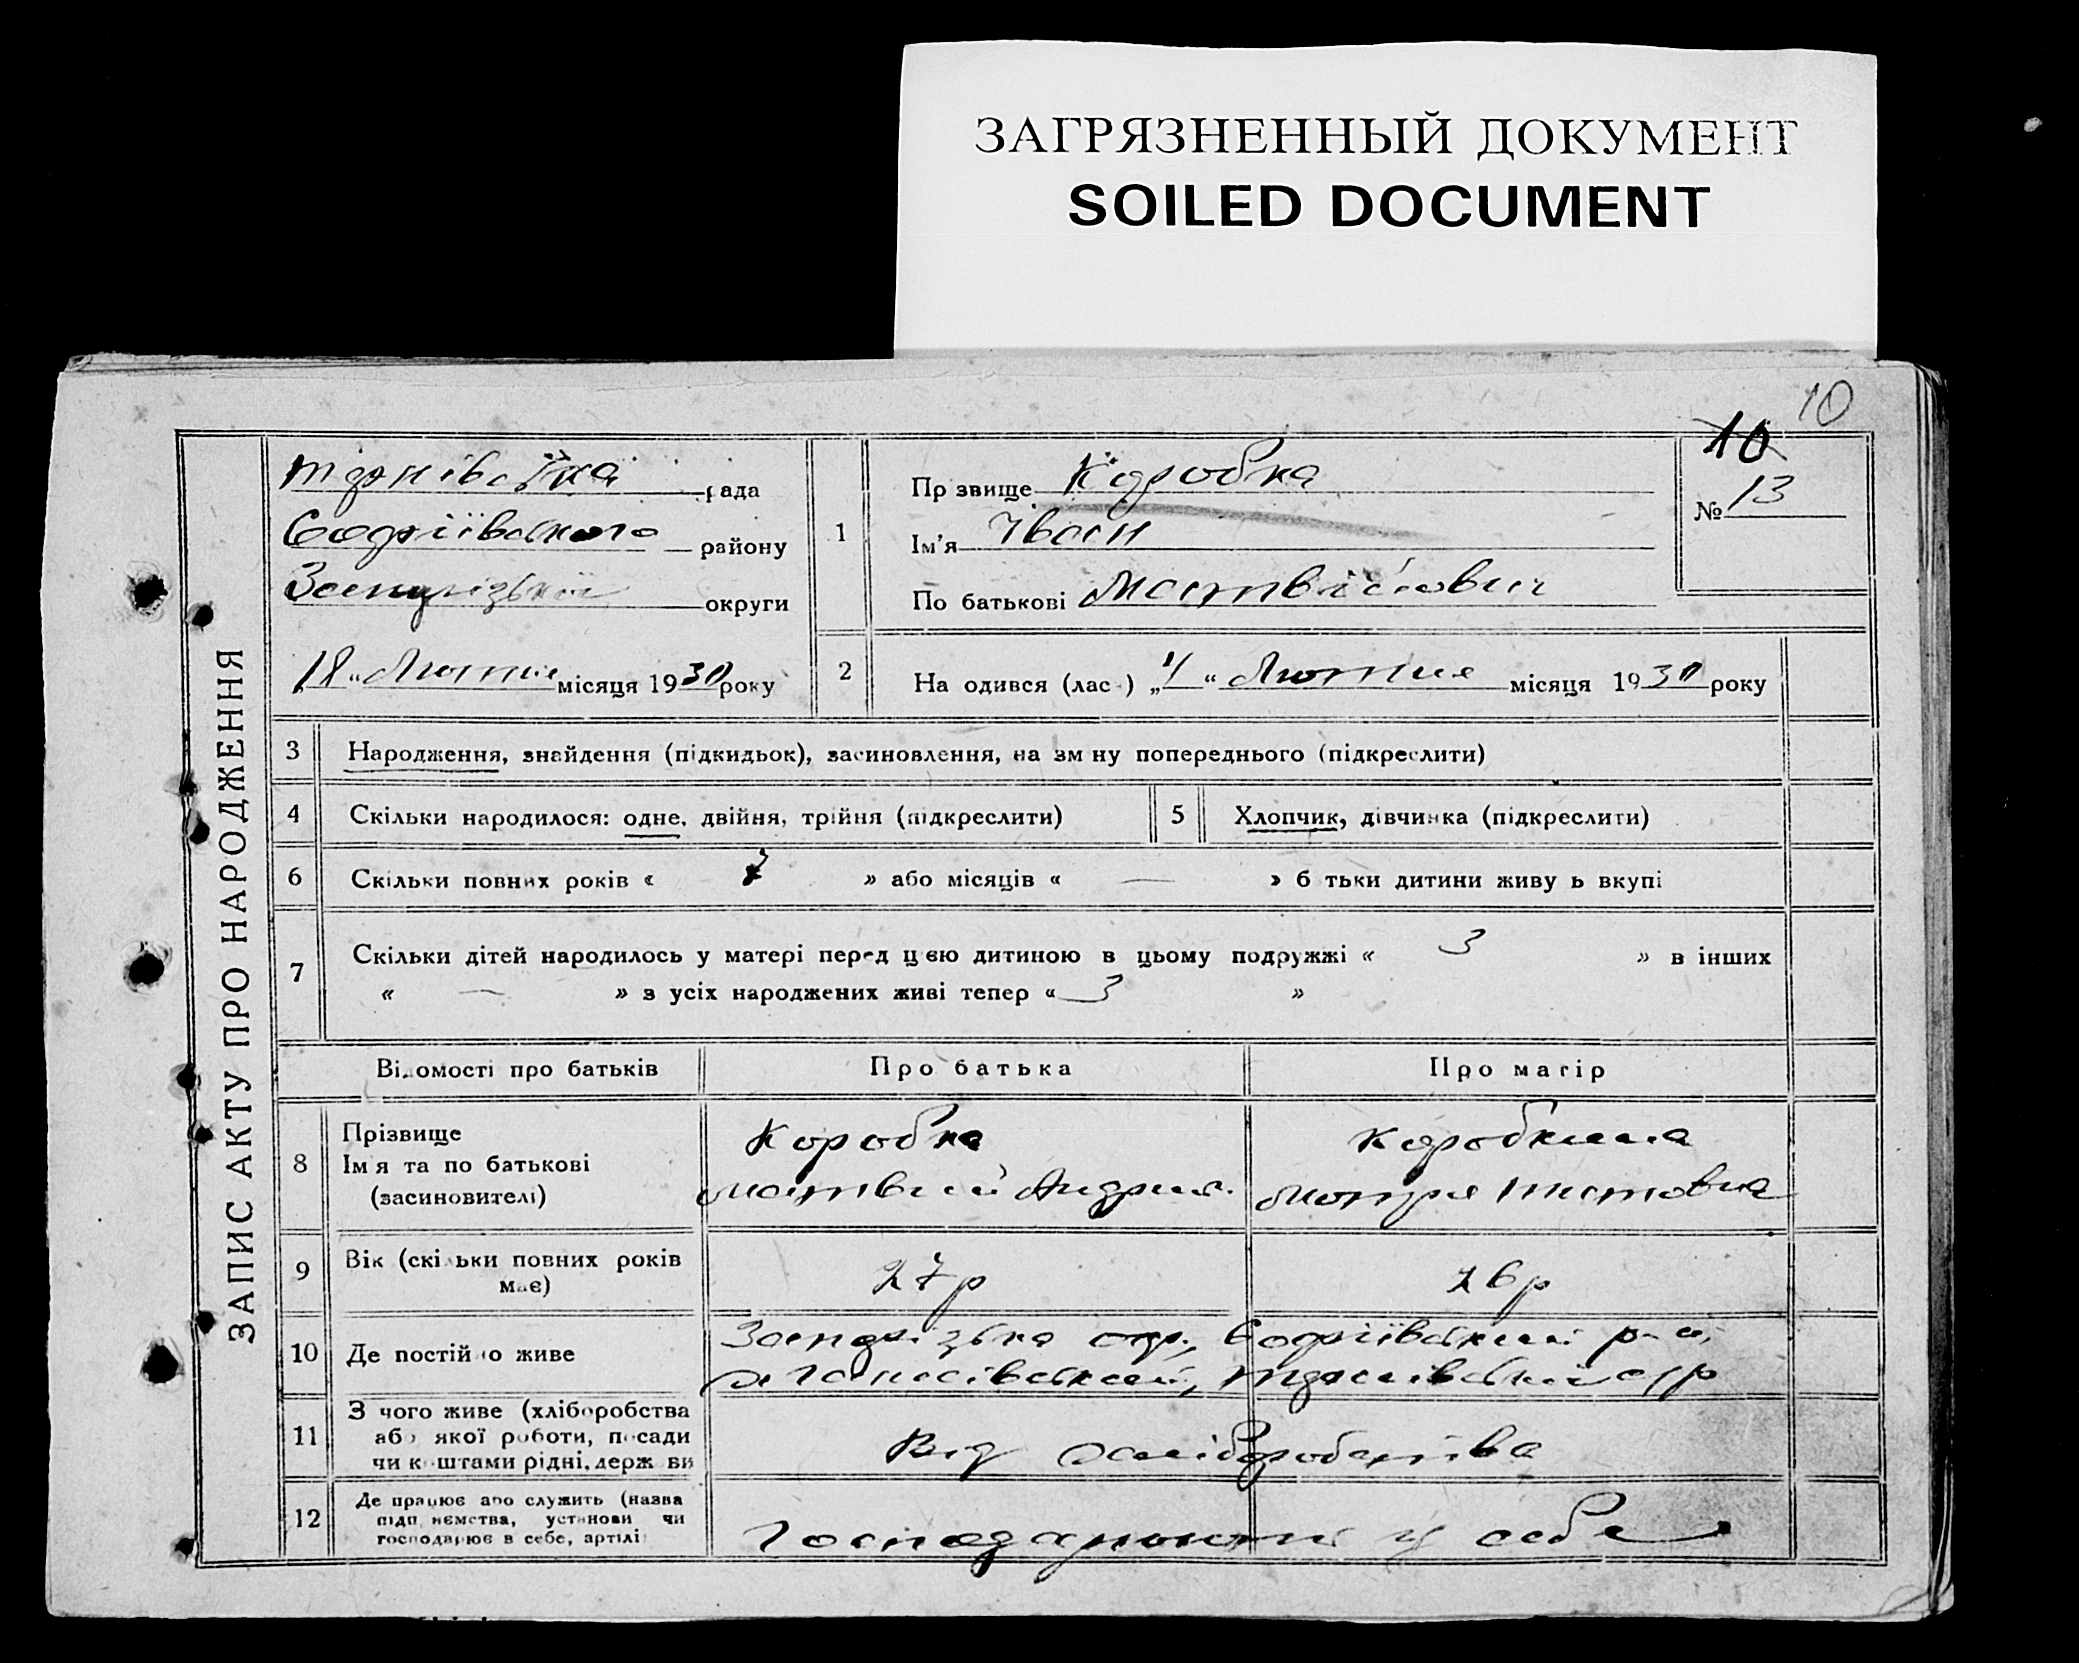 ЗАГРЯЗНЕННЫЙ ДОКУМЕНТ
SOILED DOCUMENT
10
10
ЗАПИС АКТУ ПРО НАРОДЖЕННЯ
рада
району
округи
18 “ Лютня місяця 1930 року
1
Пр звище Коробка
Ім'я Іван
По батькові Матвійович
№ 13
2
На одився (лас ) „4“ Лютня місяця 1930 року
3 Народження, знайдення (підкидьок), засиновлення, на зм ну попереднього (підкреслити)
4 Скільки народилося: одне, двійня, трійня (підкреслити)
5 Хлопчик, дівчинка (підкреслити)
6 Скільки повних років « 7 » або місяців « — » б тьки дитини живу ь вкупі
7 Скільки дітей народилось у матері перед цією дитиною в цьому подружжі « 3 » в інших
« — » з усіх народжених живі тепер « 3 »
Відомості про батьків
Про батька
Про матір
8
Прізвище
Ім я та по батькові
(засиновителі)
Коробка
Матвій Андрія.
Коробкина
Мотря Титовна
9
Вік (скільки повних років
має)
27 р
26 р
10 Де постійно живе
11
З чого живе (хліборобства
або якої роботи, посади
чи коштами рідні, держ ви
Від хліборобства
12
Де працює або служить (назва
підп иємства, установи чи
господарює в себе, артілі
Господарюють у себе